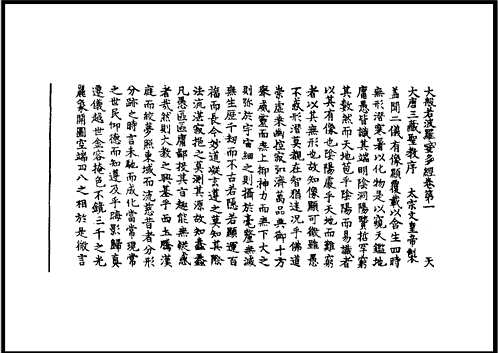 大般若波羅蜜多經卷第一 天
大唐三藏聖教序 太宗文皇帝製
蓋聞二儀有像顯覆載以含生四時
無形潛寒暑以化物是以窺天鑑地
庸愚皆識其端明陰洞陽賢哲罕窮
其數然而天地苞乎陰陽而易識者
以其有像也陰陽處乎天地而難窮
者以其無形也故知像顯可徵雖愚
不惑形潛莫覩在智猶迷況乎佛道
崇虛乘幽控寂弘濟萬品典御十方
舉威靈而無上抑神力而無下大之
則弥於宇宙細之則攝於毫釐無滅
無生歷千劫而不古若隱若顯運百
福而長今妙道凝玄遵之莫知其際
法流湛寂挹之莫測其源故知蠢蠢
凡愚區區庸鄙投其旨趣能無疑惑
者哉然則大教之興基乎西土騰漢
庭而皎夢照東域而流慈昔者分形
分跡之時言未馳而成化當常現常
之世民仰德而知遵及乎晦影歸真
遷儀越世金容掩色不鏡三千之光
麗象開圖空端四八之相於是微言